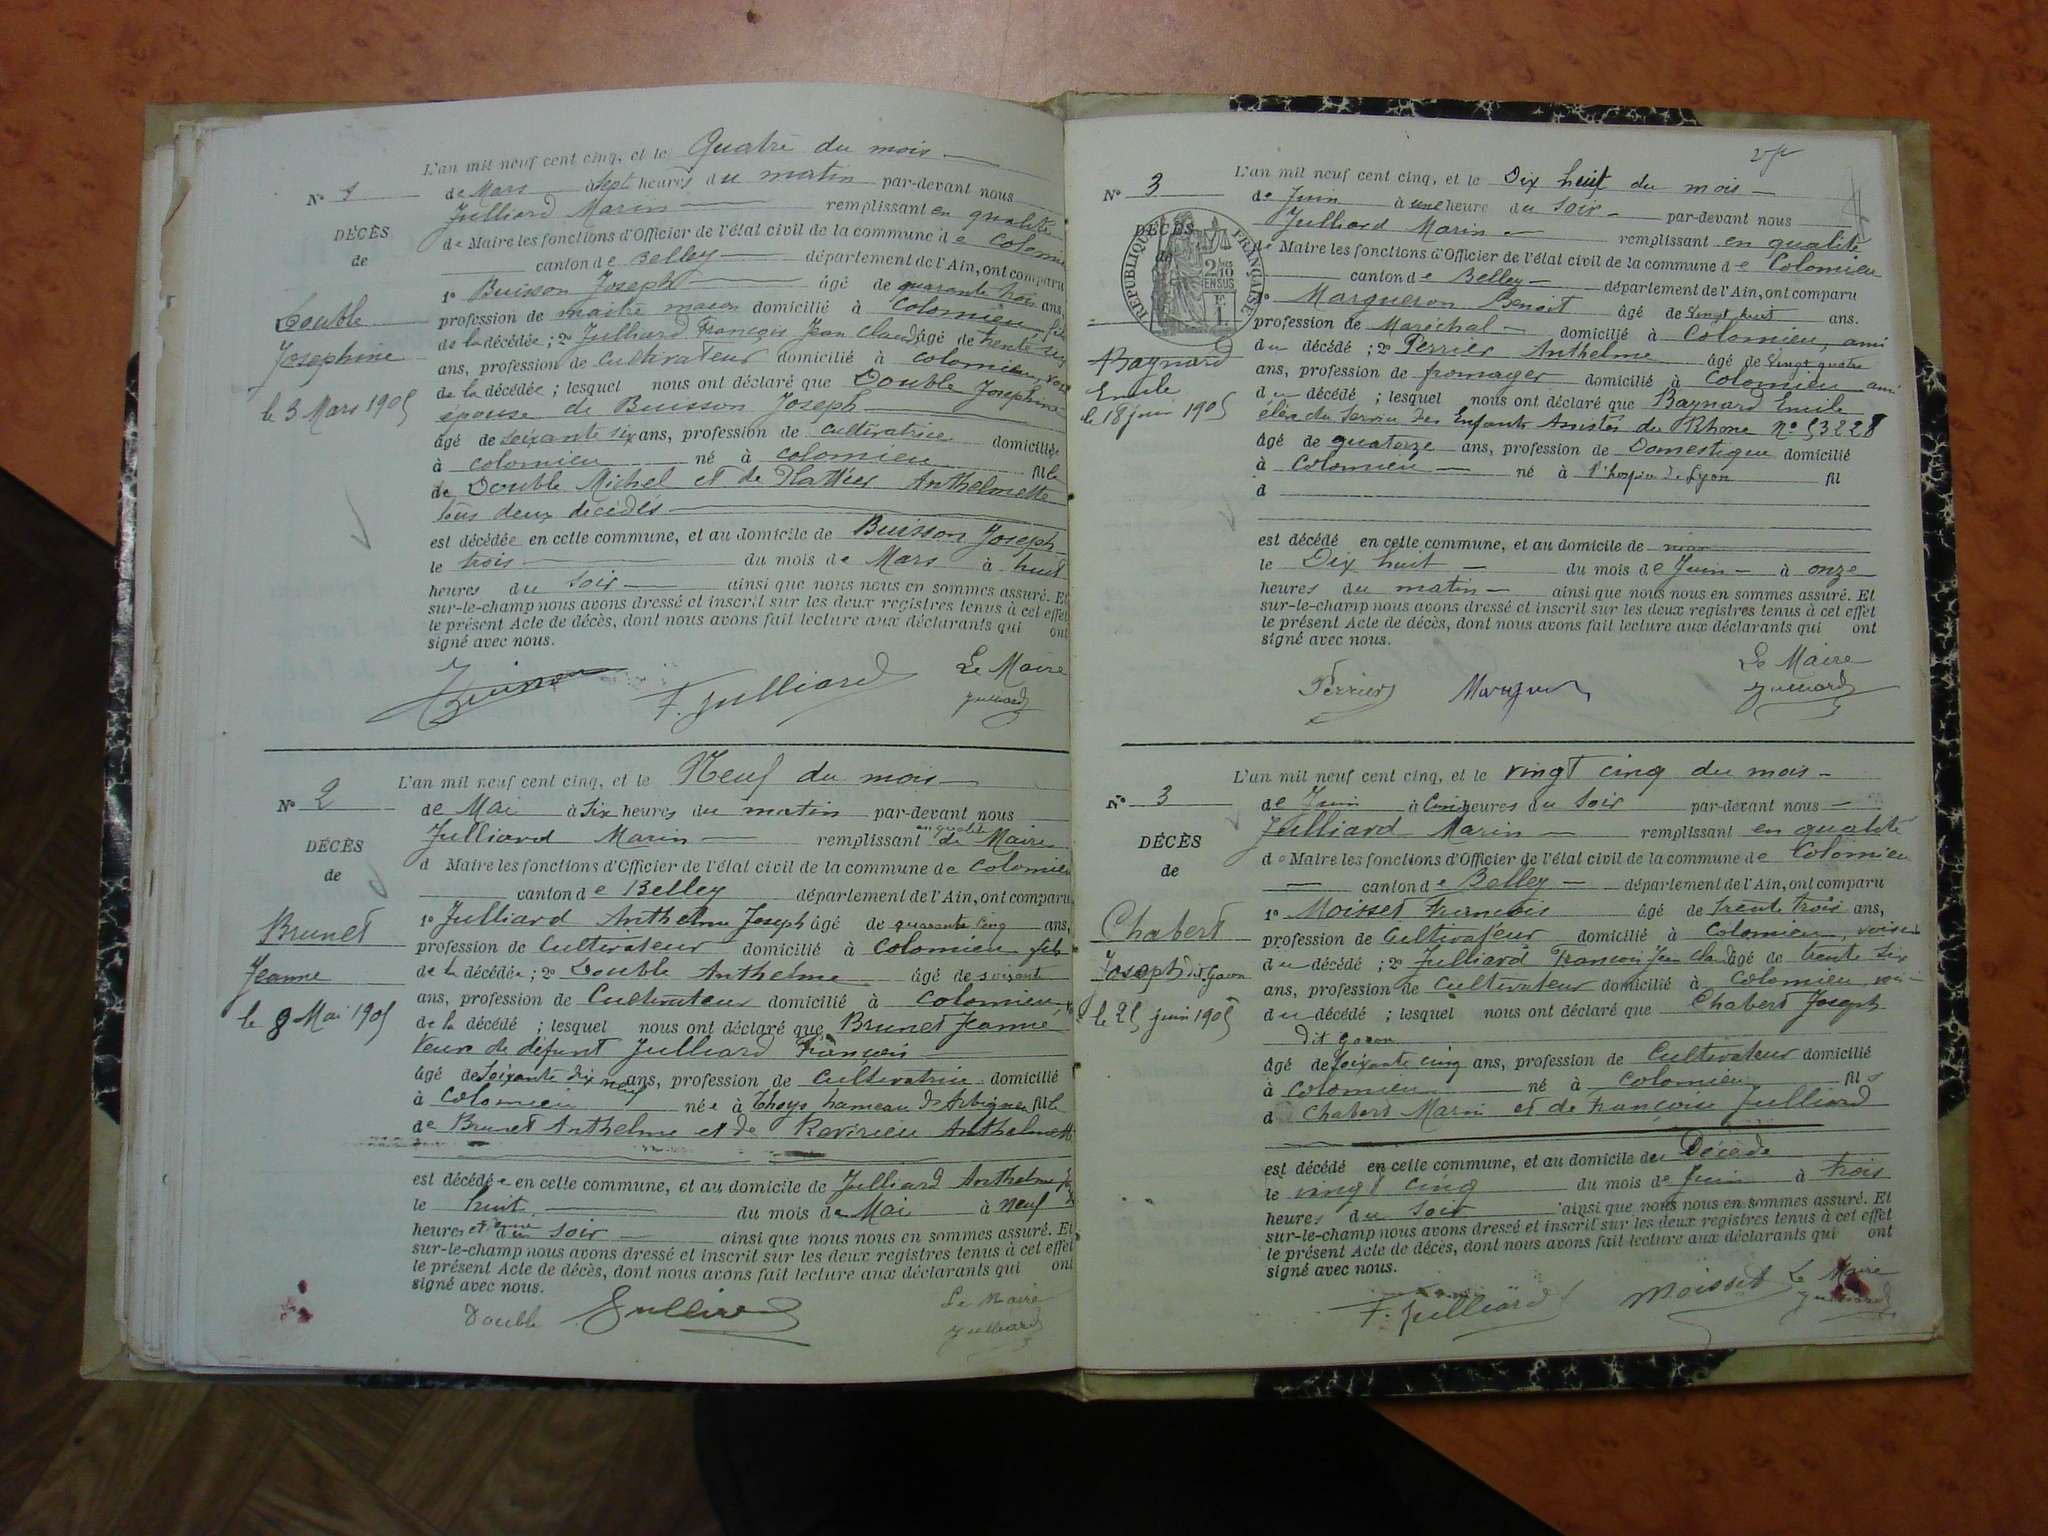 L'an mil neuf cent cinq, et le Quatre du mois
N° 1 de Mars à sept heures du matin par-devant nous
Julliard Marin remplissant en qualité
DÉCÈS de Maire les fonctions d'Officier de l'état civil de la commune de Colomieu
de canton de Belley département de l'Ain, ont comparu
1° Buisson Joseph âgé de quarante trois ans,
Double profession de maitre macon domicilié à Colomieu, fils
de la décédée ; 2° Julliard François Jean Claude âgé de trente six
Josephine ans, profession de cultivateur domicilié à colomieu, voisin
le 3 Mars 1905 de la décédée ; lesquel nous ont déclaré que Double Josephine
épouse de Buisson Joseph
âgé de soixante six ans, profession de cultivatrice domiciliée
à colomieu né à colomieu fille
de Double Michel et de Anthelmette
tous deux décédés
est décédée en cette commune, et au domicile de Buisson Joseph
le trois du mois de Mars à huit
heures du soir ainsi que nous nous en sommes assuré. Et
sur-le-champ nous avons dressé et inscrit sur les deux registres tenus à cet effet
le présent Acte de décès, dont nous avons fait lecture aux déclarants qui ont
signé avec nous.
Le Maire
F. Julliard Julliard
L'an mil neuf cent cinq, et le Neuf du mois
N° 2 de Mai à six heures du matin par-devant nous
Julliard Marin remplissant en qualité de Maire
DÉCÈS d Maire les fonctions d'Officier de l'état civil de la commune de Colomieu
de canton de Belley département de l'Ain, ont comparu
1° Julliard Anthelme Joseph âgé de quarante cinq ans,
Brunet profession de Cultivateur domicilié à Colomieu fils
Jeanne de la décédée ; 2° Double Anthelme âgé de soixante
ans, profession de Cultivateur domicilié à Colomieu
le 8 Mai 1905 de la décédé ; lesquel nous ont déclaré que Brunet Jeanne
Veuve de défunt Julliard François
âgé de Soixante dix neuf ans, profession de Cultivatrice domicilié
à Colomieu née à Thoys hameau d'Arbignieu fille
de Brunet Anthelme et de Revirieu Anthelmette
est décédée en cette commune, et au domicile de Julliard Anthelme
le huit du mois de Mai à neuf
heures et demie du soir ainsi que nous nous en sommes assuré. Et
sur-le-champ nous avons dressé et inscrit sur les deux registres tenus à cet effet
le présent Acte de décès, dont nous avons fait lecture aux déclarants qui ont
signé avec nous.
Double Julliard Le Maire
Julliard
L'an mil neuf cent cinq, et le Dix huit du mois
N° 3 de Juin à une heure du Soir par-devant nous
Julliard Marin remplissant en qualité
DÉCÈS de Maire les fonctions d'Officier de l'état civil de la commune de Colomieu
de canton de Belley département de l'Ain, ont comparu
RÉPUBLIQUE FRANÇAISE
1° Margueron Benoit âgé de vingt huit ans.
profession de Maréchal domicilié à Colomieu, ami
Baynard du décédé ; 2° Perrier Anthelme âgé de vingt quatre
Emile ans, profession de fromager domicilié à Colomieu ami
le 18 juin 1905 du décédé ; lesquel nous ont déclaré que Baynard Emile
élève du Service des Enfants Assistés du Rhône N° 53228
âgé de quatorze ans, profession de Domestique domicilié
à Colomieu né à l'hospice de Lyon fil
d
est décédé en cette commune, et au domicile de
le Dix huit du mois de Juin à onze
heures du matin ainsi que nous nous en sommes assuré. Et
sur-le-champ nous avons dressé et inscrit sur les deux registres tenus à cet effet
le présent Acte de décès, dont nous avons fait lecture aux déclarants qui ont
signé avec nous.
Le Maire
Perrier Julliard
L'an mil neuf cent cinq, et le vingt cinq du mois
N° 3 de Juin à Cinq heures du Soir par-devant nous
Julliard Marin remplissant en qualité
DÉCÈS de Maire les fonctions d'Officier de l'état civil de la commune de Colomieu
de canton de Belley département de l'Ain, ont comparu
1° Moisset François âgé de trente trois ans,
Chabert profession de Cultivateur domicilié à Colomieu, voisin
Joseph dit Gavon du décédé ; 2° Julliard François Jean Claude âgé de trente six
ans, profession de Cultivateur domicilié à Colomieu
le 25 juin 1905 du décédé ; lesquel nous ont déclaré que Chabert Joseph
dit Gavon
âgé de soixante cinq ans, profession de Cultivateur domicilié
à Colomieu né à Colomieu fils
d Chabert Marin et de Françoise Julliard
est décédé en cette commune, et au domicile du Décédé
le vingt cinq du mois de Juin à trois
heures du Soir ainsi que nous nous en sommes assuré. Et
sur-le-champ nous avons dressé et inscrit sur les deux registres tenus à cet effet
le présent Acte de décès, dont nous avons fait lecture aux déclarants qui ont
signé avec nous.
F. Julliard Moisset Le Maire
Julliard